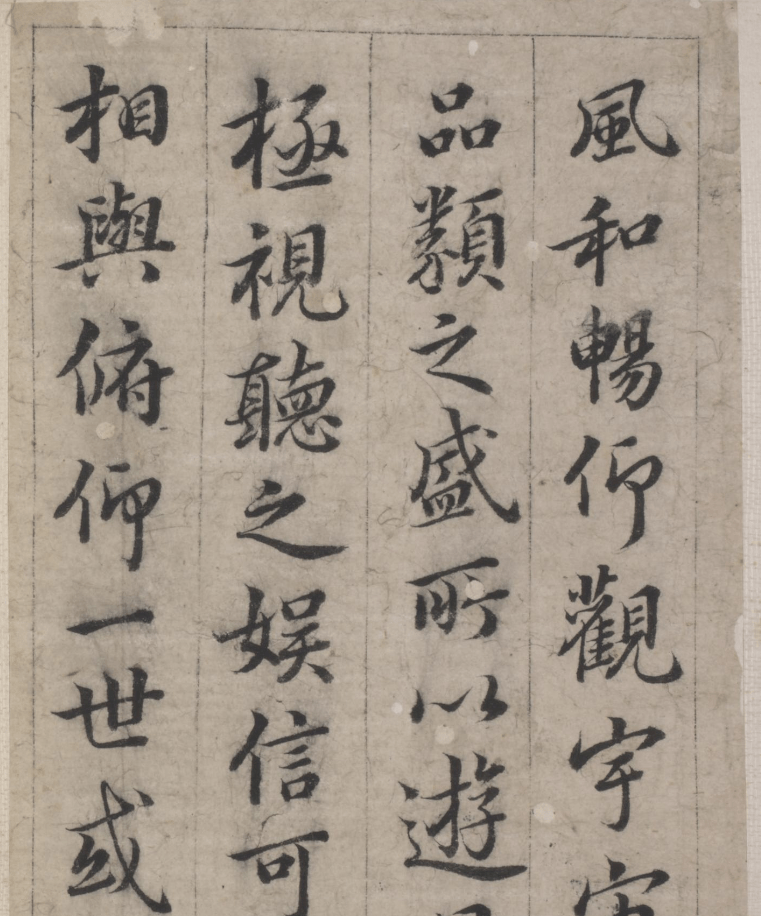 風和暢仰觀宇宙
品類之盛所以遊
極視聽之娛信可
相與俯仰一世或